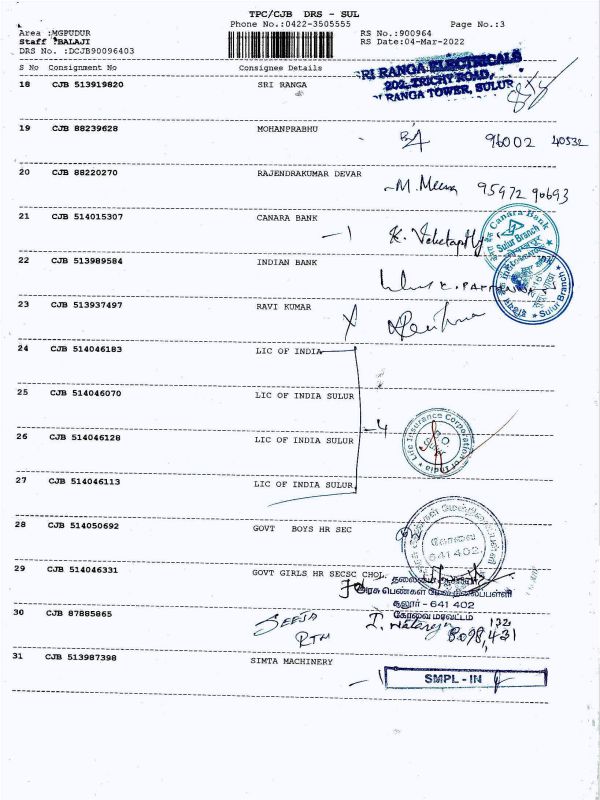 TPC/CJB DRS - SUL
Phone No.:0422-3505555 Page No.:3
Area :MGPUDUR RS No.:900964
Staff :BALAJI RS Date:04-Mar-2022
DRS No. :DCJB90096403
S No Consignment No Consignee Details
SRI RANGA ELECTRICALS
202, TRICHY ROAD,
RANGA TOWER, SULUR
18 CJB 513919820 SRI RANGA
19 CJB 88239628 MOHANPRABHU 96002 40532
20 CJB 88220270 RAJENDRAKUMAR DEVAR
M. Meena 95972 90693
21 CJB 514015307 CANARA BANK
- 1
Canara Bank
Sulur Branch
22 CJB 513989584 INDIAN BANK
Sulur Branch
23 CJB 513937497 RAVI KUMAR
24 CJB 514046183 LIC OF INDIA
25 CJB 514046070 LIC OF INDIA SULUR
26 CJB 514046128 LIC OF INDIA SULUR
- 4
Life Insurance Corporation of India
27 CJB 514046113 LIC OF INDIA SULUR
28 CJB 514050692 GOVT BOYS HR SEC
கோவை
641 402.
29 CJB 514046331 GOVT GIRLS HR SECSC CHOL.
அரசு பெண்கள் மேல்நிலைப்பள்ளி
சூலூர் - 641 402
கோவை மாவட்டம்
30 CJB 87885865
31 CJB 513987398 SIMTA MACHINERY
SMPL - IN